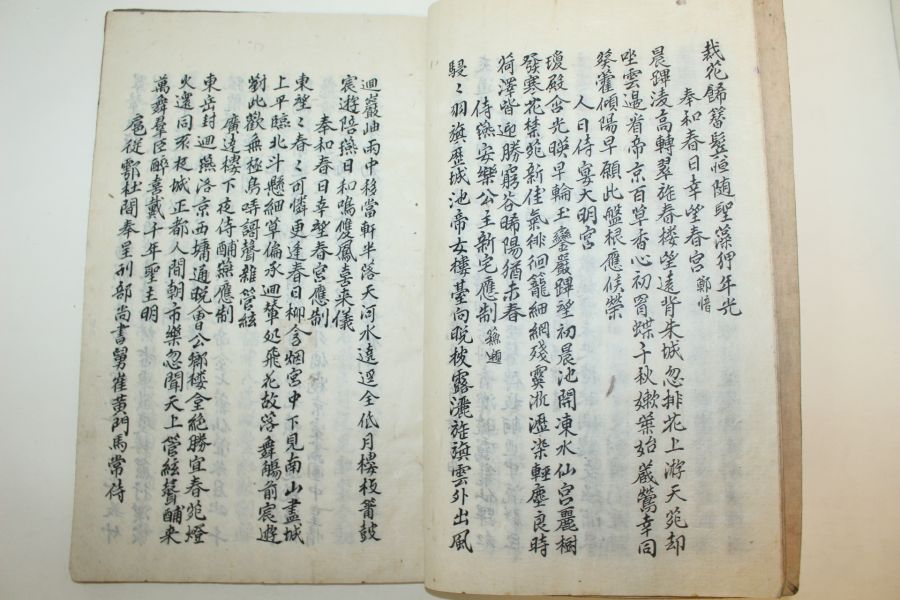 栽花歸簪髮恒随聖藻狎年光
奉和春日幸望春宮 鄭愔
晨蹕淩高轉翠旌春楼望遠背朱城忽排花上游天苑却
坐雲邉省帝京百草香心初罥蝶千秋嫰葉始蔵鶯幸同
葵藿傾陽早願此盤根應候榮
人日侍宴大明宮
瓊殿含光暎早輪玉鑾嚴蹕望初晨池開凍水仙宮麗樹
發寒花禁苑新佳氣徘徊籠細網殘霙淅瀝染輕塵良時
荷澤皆迎勝窮谷晞陽猶未春
侍燕安樂公主新宅應制 蘇頲
駸〻羽旗歴城池帝女樓臺向晩披露灑旌旗雲外出風
迴巖岫雨中移當軒半落天河水遶逕全低月樓枝簫鼓
宸遊陪燕日和鳴雙鳳喜来儀
奉和春日幸望春宮應制
東望〻春〻可憐更逢春日柳含烟宮中下見南山盡城
上平臨北斗懸細草偏承迴輦処飛花故落舞觴前宸遊
對此歡無極鳥哢謌聲雜管絃
廣達樓下夜侍酺燕應制
東岳封迴燕洛京西墉通晩會公卿樓臺絶勝宜春苑燈
火還同不夜城正都人間朝市樂忽聞天上管絃聲酺来
萬舞羣臣醉喜戴千年聖主明
扈從鄠杜間奉呈刑部尚書舅崔黄門馬常侍